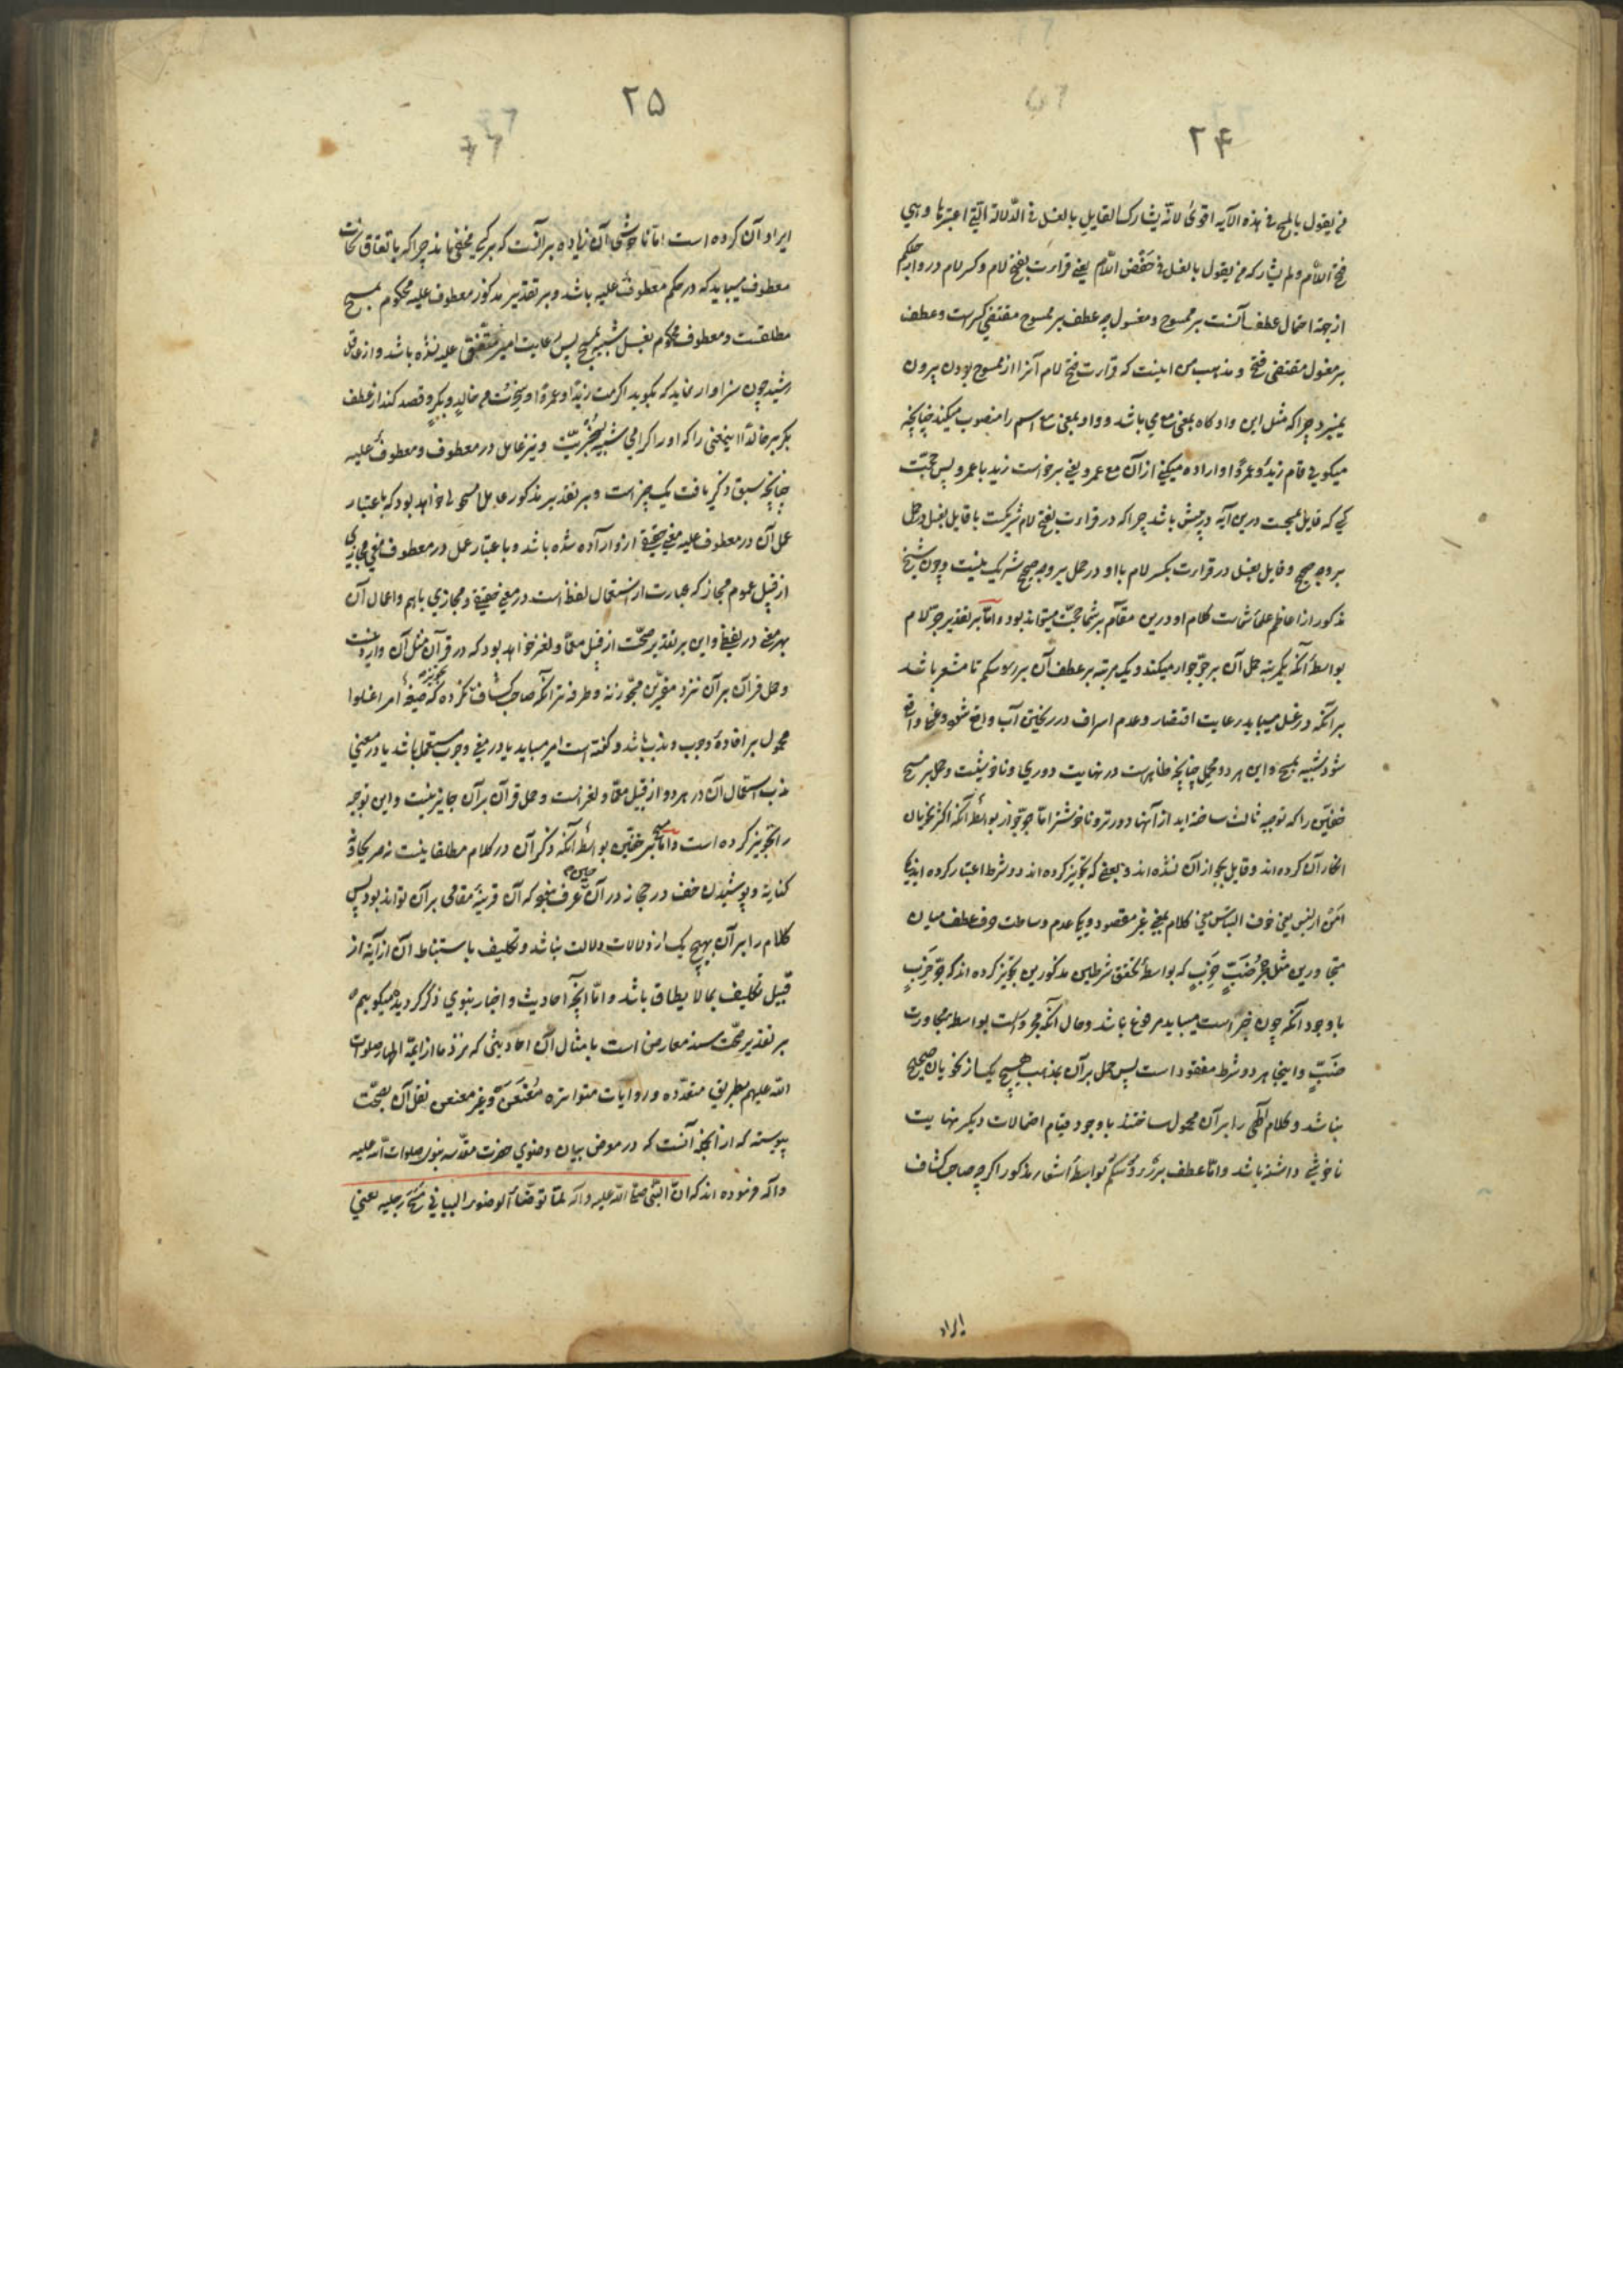 ۲۴
من یقول بالمسح فی هذه الآیه اقوی لانّه یشارک القایل بالغسل فی الدّلالة الّتی اعتبرها وهی
فتح اللّام ولم یشارکه من یقول بالغسل فی خفض اللّام یعنی قراءت بفتح لام وکسر لام در وارجلکم
از جهة احتمال عطف آنست بر ممسوح ومغسول چه عطف بر ممسوح مقتضی کسرست وعطف
بر مغسول مقتضی فتح و مذهب من اینست که قراءت فتح لام آنرا از ممسوح بودن بیرون
نمیبرد چرا که مثل این واو کاه بمعنی مع می باشد و واو بمعنی مع اسم را منصوب میکند چنانچه
میکویی قام زیدٌ وعمرًا واراده میکنی از آن مع عمرو یعنی برخاست زید با عمرو پس حجّت
کسی که قایل بمسحت درین آیه در پیش باشد چرا که در قراءت بفتح لام شریکست با قایل بغسل در حمل
بر وجه صحیح وقایل بغسل در قراءت بکسر لام با او در حمل بر وجه صحیح شریک نیست وچون شیخ
مذکور از اعاظم علماء شماست کلام او درین مقام بر شما حجّت میتواند بود وامّا بر تقدیر جرّ لام
بواسطهٔ آنکه یکمرتبه حمل آن بر جرّ جوار میکنند ویک مرتبه بر عطف آن بر رؤسکم تا مشعر باشد
بر آنکه در غسل میباید رعایت اقتصار وعدم اسراف در ریختن آب واقع شود وغسل واقع
شود شبیه بمسح واین هر دو محمل چنانچه ظاهرست در نهایت دوری وناخوشیست وحمل بر مسح
خفّین را که توجیه ثالث ساخته اید از آنها دورتر وناخوشتر امّا جرّ جوار بواسطهٔ آنکه اکثر نحویان
انکار آن کرده اند وقایل بجواز آن نشده اند وبعضی که تجویز کرده اند دو شرط اعتبار کرده اند یکی
امن از لبس یعنی خوف التباس معنی کلام بمعنی غیر مقصود ویکی عدم وساطت حرف عطف میان
متجاورین مثل جُحرُ ضَبٍّ خَرِبٍ که بواسطهٔ تحقق شرطین مذکورین تجویز کرده اند که جرّ خربٍ
با وجود آنکه چون خبر است میباید مرفوع باشد وحال آنکه مجرور است بواسطه مجاورت
ضبٍّ واینجا هر دو شرط مفقود است پس حمل بر آن بمذهب هیچ یک از نحویان صحیح
نباشد وکلام الٓهی را بر آن محمول ساختند با وجود قیام احتمالات دیکر نهایت
ناخوشی داشته باشد وامّا عطف بر رؤسکم بواسطهٔ اشعار مذکور اکرچه صاحب کشاف
ایراد
۲۵
ایراد آن کرده است امّا ناخوشی آن زیاده بر آنست که بر کسی مخفی ماند چرا که باتفاق نحات
معطوف میباید که در حکم معطوف علیه باشد وبر تقدیر مذکور معطوف علیه محکوم بمسح
مطلقست ومعطوف محکوم بغسل شبیه بمسح پس رعایت امر متّفق علیه نشده باشد واز عاقل
رشید چون سزاوار نماید که بکوید اکرمت زیدًا وعمرًا وسخرت من خالدٍ وبکرٍ وقصد کند از عطف
بکر بر خالد اینمعنی را که او را اکرامی شبیه بسخریّت ونیز عامل در معطوف ومعطوف علیه
چنانچه سبق ذکر یافت یک چیز است وبر تقدیر مذکور عامل امسحوا خواهد بود که باعتبار
عمل آن در معطوف علیه معنی حقیقی از او اراده شده باشد وباعتبار عمل در معطوف معنی مجازی
از قبیل عموم مجاز که عبارت از استعمال لفظ است در معنی حقیقی ومجازی باهم واعمال آن
بهر معنی در لفظی واین بر تقدیر صحّت از قبیل معمّا ولغز خواهد بود که در قرآن مثل آن وارد نیست
وحمل قرآن بر آن نزد مفسّرین مجوّز نه وطرفه تر آنکه صاحب کشاف تجویز نکرده که صیغهٔ امر اغسلوا
محمول بر افادهٔ وجوب وندب باشد وکفته است امر میباید یا در معنی وجوب مستعمل باشد یا در معنی
ندب استعمال آن در هر دو از قبیل معمّا ولغز است وحمل قرآن بر آن جایز نیست واین توجیه
را تجویز کرده است وامّا مسح بر خفّین بواسطهٔ آنکه ذکر آن در کلام مطلقا نیست نه صریحا ونه
کنایة وپوشیدن خف در حجاز در آن حین عرف نبود که آن قرینهٔ مقامی بر آن تواند بود پس
کلام را بر آن بهیچ یک از دلالات دلالت نباشد وتکلیف باستنباط آن از آیه از
قبیل تکلیف بما لا یطاق باشد وامّا آنچه احادیث واخبار نبوی ذکر کردید میکوییم
بر تقدیر صحّت سند معارض است بامثال آن احادیثی که نزد ما از ایمّهٔ اطهار صلوات
اللّه علیهم بطریق متعدّده وروایات متواتره مُعَنعَن وغیر معنعن نقل آن بصحّت
پیوسته که از انجمله آنست که در معرض بیان وضوی حضرت مقدّسه نبوی صلوات اللّه علیه
وآله فرموده اند که انّ النّبی صلّی اللّه علیه وآله لمّا توضّأ الوضوء البیانی مسح رجلیه یعنی